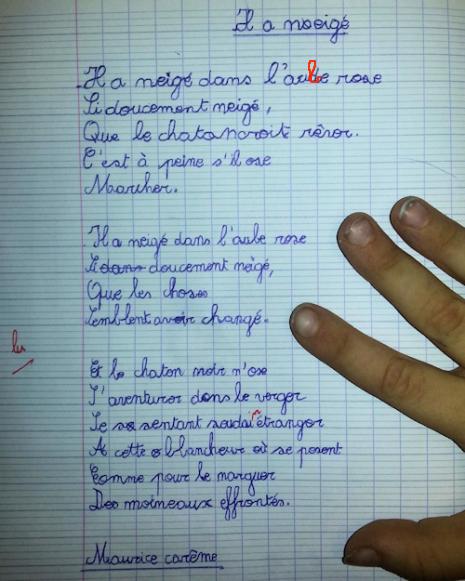 Il a neigé
Il a neigé dans l'aube rose
Si doucement neigé,
Que le chaton croit rêver.
C'est à peine s'il ose
Marcher.
Il a neigé dans l'aube rose
Si doucement neigé,
Que les choses
Semblent avoir changé.
Et le chaton noir n'ose
S'aventurer dans le verger
Se sentant soudain étranger
A cette blancheur où se posent
Comme pour le narguer
Des moineaux effrontés.
Maurice carême